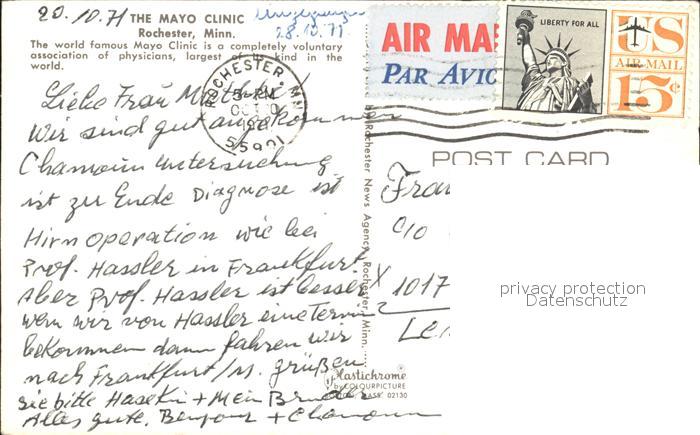 20.10.71 THE MAYO CLINIC
Rochester, Minn.
28.10.71
The world famous Mayo Clinic is a completely voluntary
association of physicians, largest of its kind in the
world.
AIR MA
PAR AVIO
LIBERTY FOR ALL
US
AIR MAIL
15¢
ROCHESTER, MN
PM
OCT 20
55901
POST CARD
Liebe Frau
Wir sind gut angekommen
Untersuchung
ist zu Ende Diagnose ist
Hirnoperation wie bei
Prof. Hassler in Frankfurt
Aber Prof. Hassler ist besser
wenn wir von Hassler eine Termin
bekommen dann fahren wir
nach Frankfurt/M. grüßen
sie bitte + Mein Bruder
Alles gute.
by Rochester News Agency, Rochester, Minn.
Frau
c/o
1017
Plastichrome
by COLOURPICTURE
BOSTON, MASS. 02130
privacy protection
Datenschutz